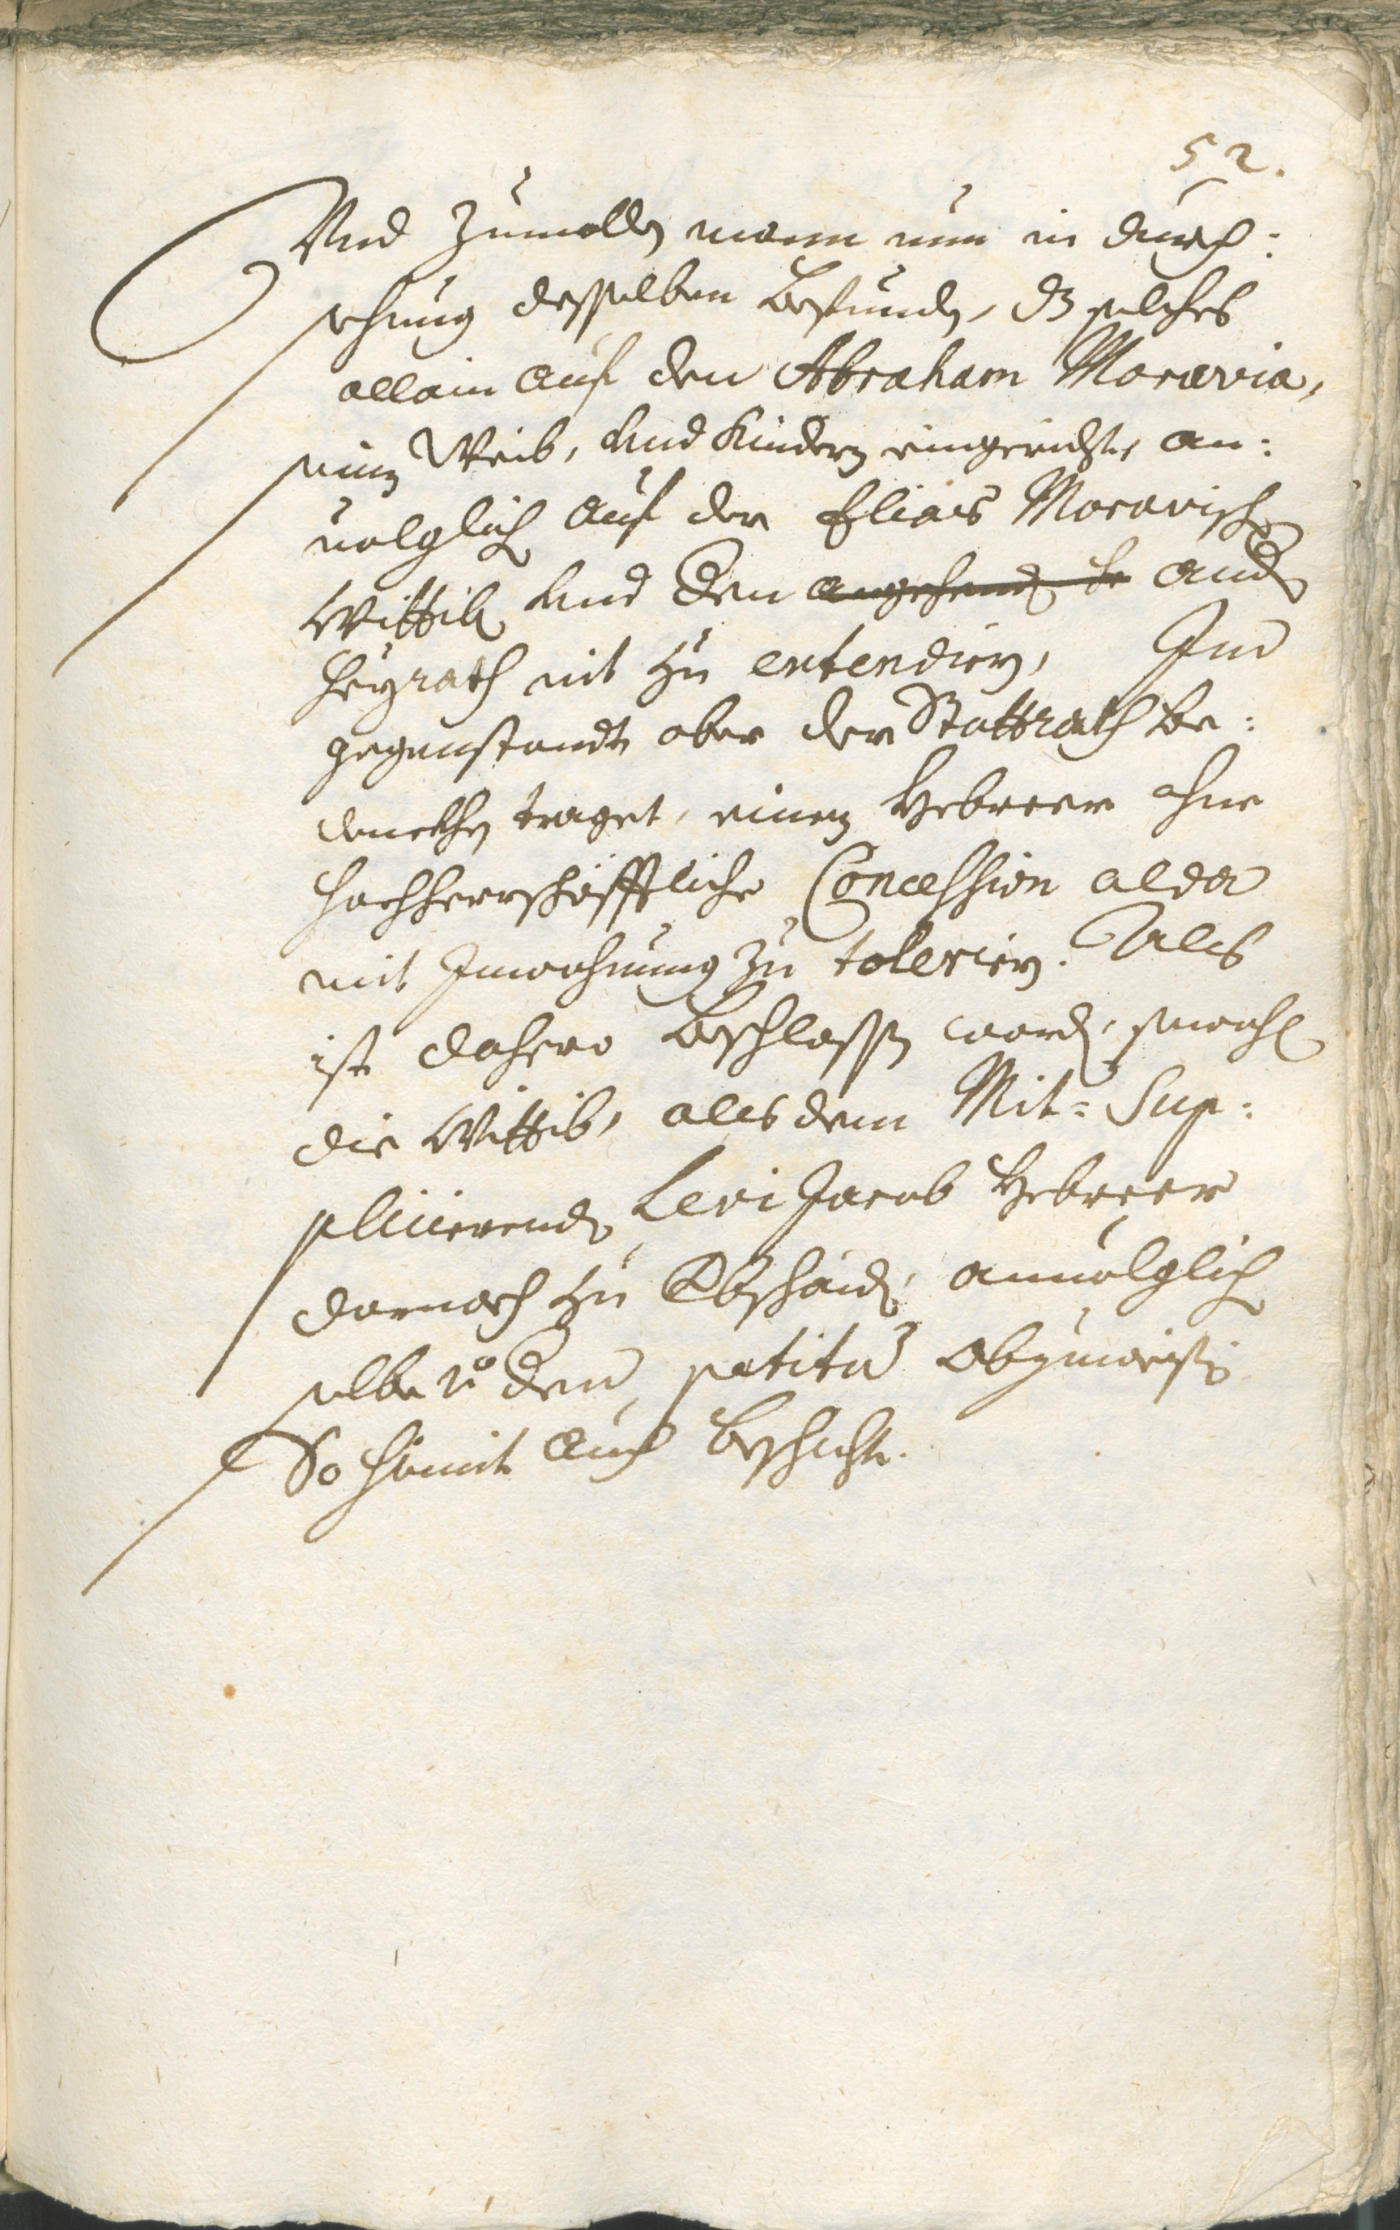 52.
Vnd Zumallen mann nun in durch:
sehung desselben befunden, dz solches
allain auf den Abraham Moravia,
sein Weib, und Kindern eingericht, an:
uolglich auf der Elias Moravisch
Wittib und den andern
Heyrath nit zu extendiern, Im
gegenstandt aber der Stattrath be:
denckhen traget, einen Hebreer ohne
hochherrschäfftliche Concession alda
mit Inwohnung zu toleriern. Als
ist dahero beschlossen word, sowohl
die Wittib, als dem Mit- Sup:
plicierenden Levi Jacob Hebreer
darnach zu bschaiden, anuolglich
selbe von dem petito abzuweisen
So hiemit auch beschicht.